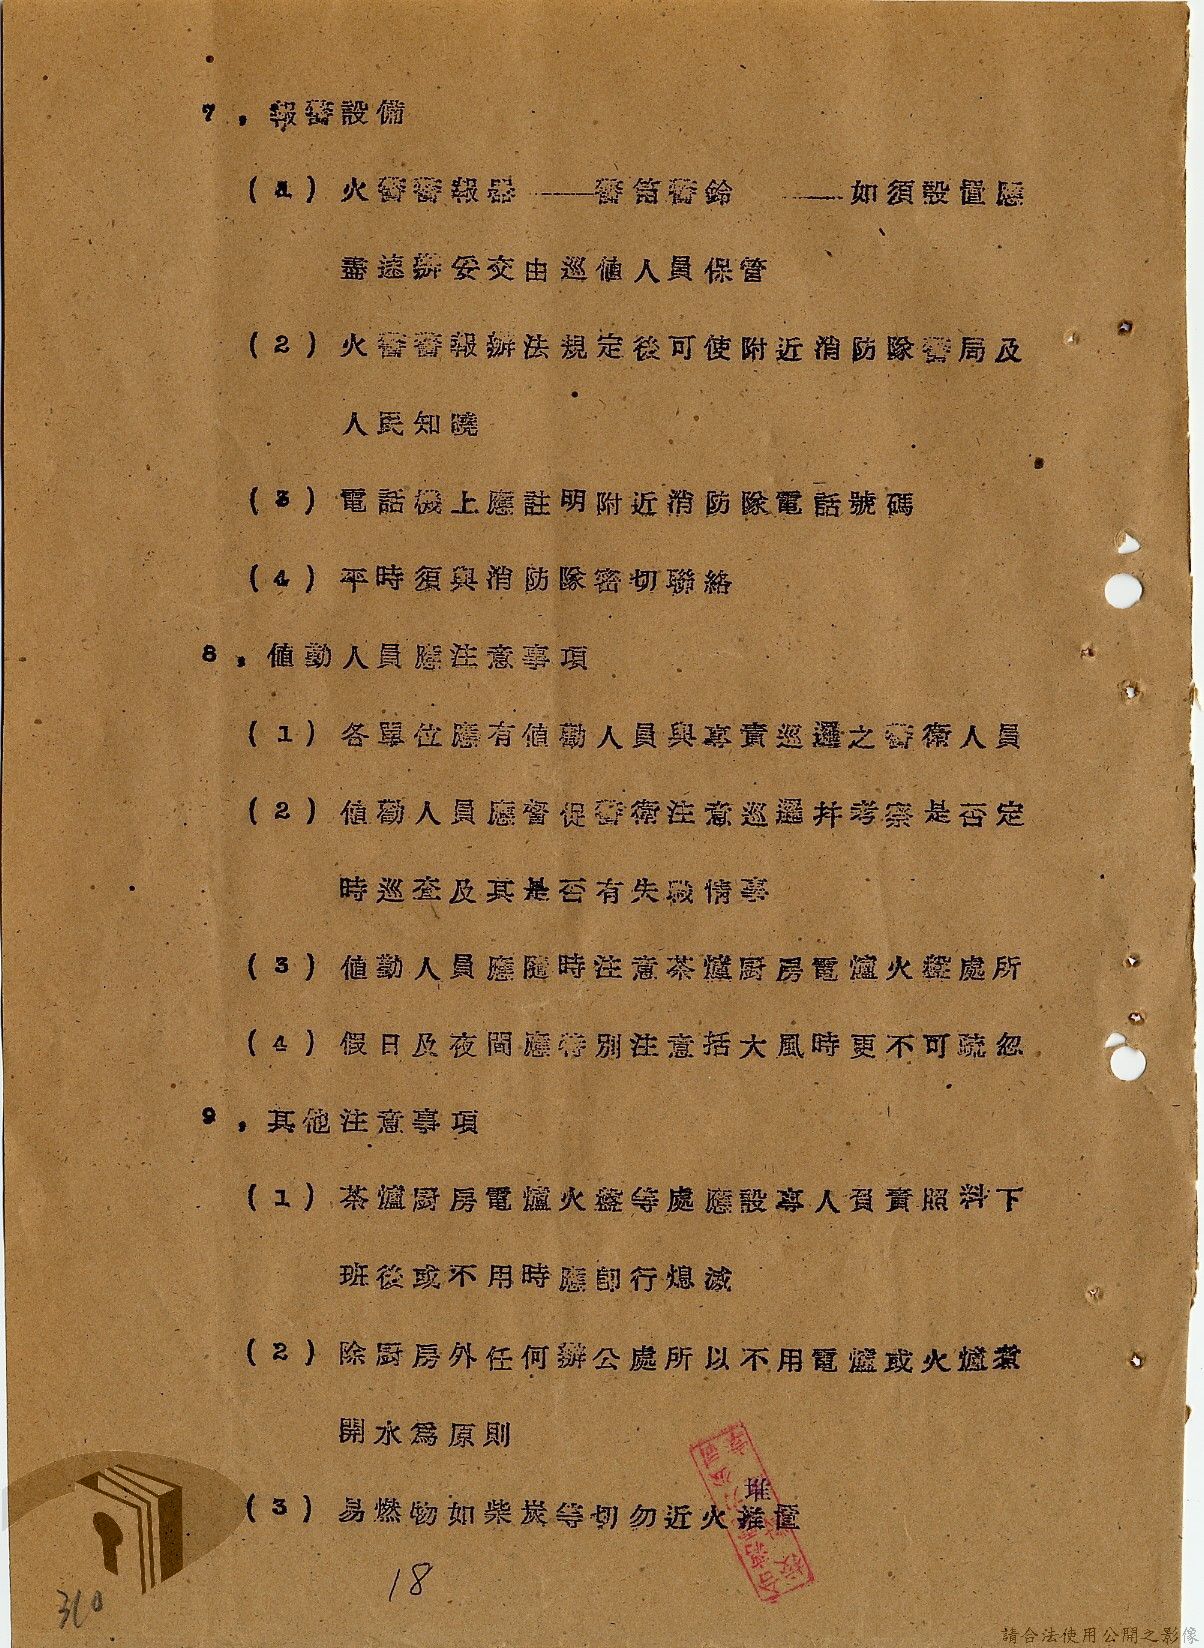 7，報警設備
(1)火警警報器——警笛警鈴——如須設置應
盡速辦妥交由巡値人員保管
(2)火警警報辦法規定後可使附近消防隊警局及
人民知曉
(3)電話機上應註明附近消防隊電話號碼
(4)平時須與消防隊密切聯絡
8，値勤人員應注意事項
(1)各單位應有値勤人員與專責巡邏之警衛人員
(2)値勤人員應督促警衛注意巡邏并考察是否定
時巡查及其是否有失職情事
(3)値勤人員應隨時注意茶爐厨房電爐火盆處所
(4)假日及夜間應特別注意括大風時更不可疏忽
9，其他注意事項
(1)茶爐厨房電爐火盆等處應設專人負責照料下
班後或不用時應卽行熄滅
(2)除厨房外任何辦公處所以不用電爐或火爐煮
開水爲原則
(3)易燃物如柴炭等切勿近火堆置
18
310
請合法使用公開之影像